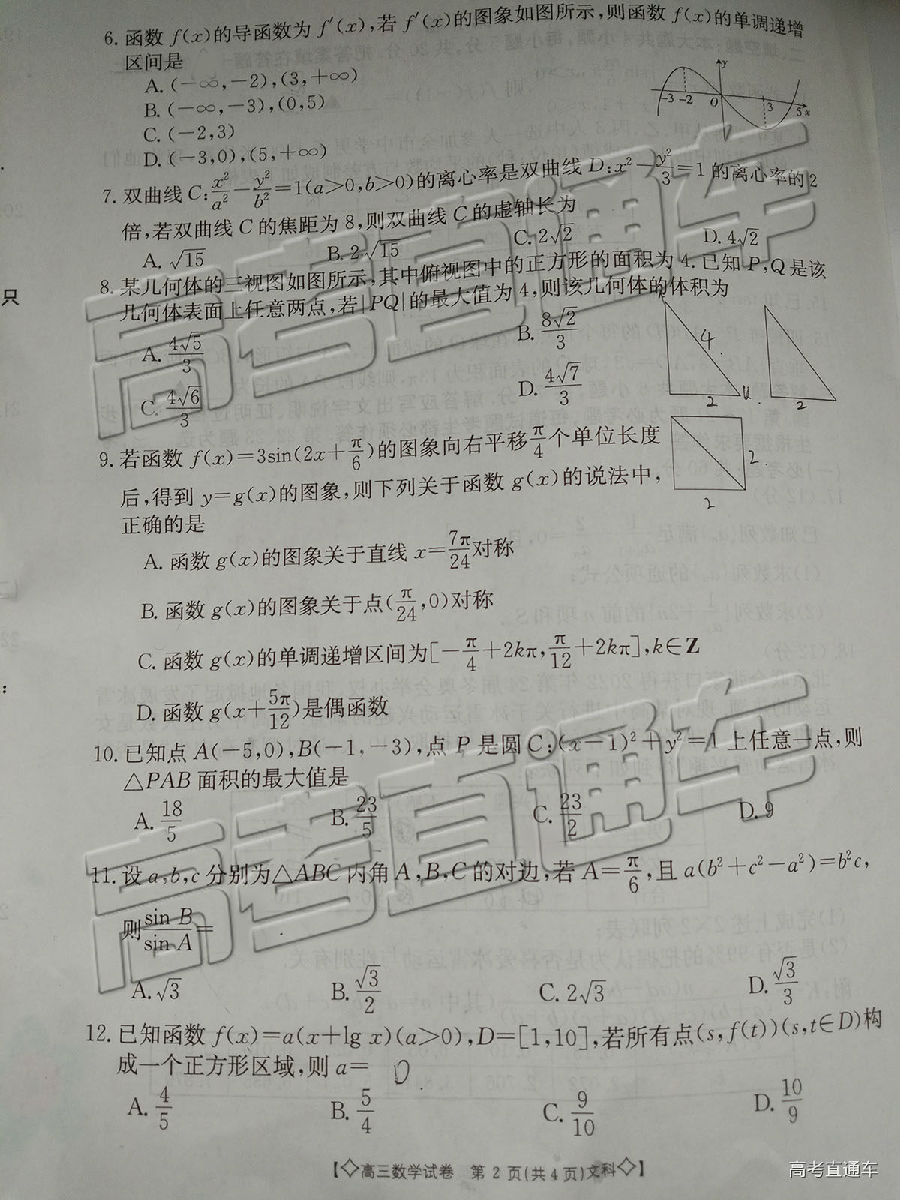 6. 函数 f(x)的导函数为 f′(x),若 f′(x)的图象如图所示,则函数 f(x)的单调递增
区间是
A. (-∞,-2),(3,+∞)
B. (-∞,-3),(0,5)
C. (-2,3)
D. (-3,0),(5,+∞)
y
-3 -2 O 3 5 x
7. 双曲线 C: x²/a² - y²/b² =1(a>0,b>0)的离心率是双曲线 D: x² - y²/3 =1 的离心率的 2
倍,若双曲线 C 的焦距为 8,则双曲线 C 的虚轴长为
A. √15 B. 2√15 C. 2√2 D. 4√2
8. 某几何体的三视图如图所示,其中俯视图中的正方形的面积为 4.已知 P,Q 是该
几何体表面上任意两点,若|PQ|的最大值为 4,则该几何体的体积为
A. 4√5/3 B. 8√2/3
C. 4√6/3 D. 4√7/3
4
2 2
2
2
9. 若函数 f(x)=3sin(2x+π/6)的图象向右平移 π/4 个单位长度
后,得到 y=g(x)的图象,则下列关于函数 g(x)的说法中,
正确的是
A. 函数 g(x)的图象关于直线 x=7π/24 对称
B. 函数 g(x)的图象关于点(π/24,0)对称
C. 函数 g(x)的单调递增区间为[-π/4+2kπ,π/12+2kπ],k∈Z
D. 函数 g(x+5π/12)是偶函数
10. 已知点 A(-5,0),B(-1,-3),点 P 是圆 C:(x-1)²+y²=1 上任意一点,则
△PAB 面积的最大值是
A. 18/5 B. 23/5 C. 23/2 D. 9
11. 设 a,b,c 分别为△ABC 内角 A,B,C 的对边,若 A=π/6,且 a(b²+c²-a²)=b²c,
则 sin B/sin A =
A. √3 B. √3/2 C. 2√3 D. √3/3
12. 已知函数 f(x)=a(x+lg x)(a>0),D=[1,10],若所有点(s,f(t))(s,t∈D)构
成一个正方形区域,则 a=
A. 4/5 B. 5/4 C. 9/10 D. 10/9
【◇高三数学试卷 第 2 页(共 4 页)文科◇】
只
:
高考直通车
高考直通车
高考直通车